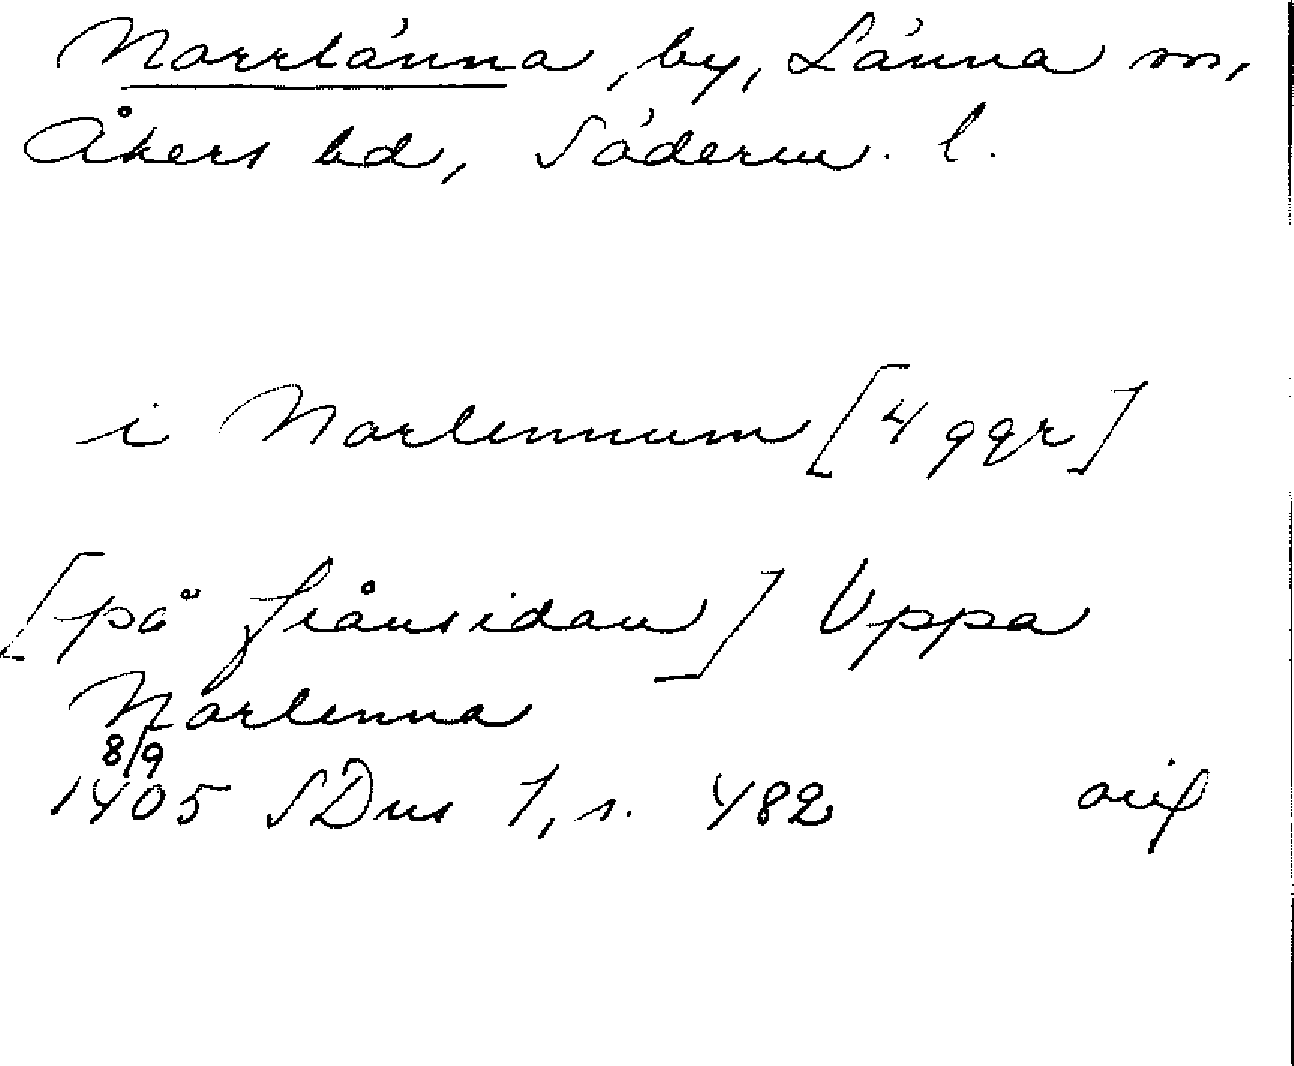 Norrlänna, by, Länna sn,
Åkers hd, Söderm. l.
i Norlennum [4 ggr]
[på frånsidan] Uppa
Norlenna
8/9
1405 SDns 1, s. 482 orig